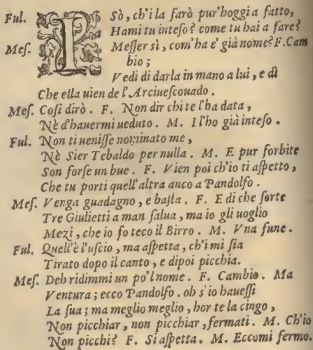 Ful. IO Sò, ch'i la farò pur'hoggi a fatto,
Hami tu inteso? come tu hai a fare?
Mes. Messer sì, com'ha e' già nome? F. Cam
bio;
Vedi di darla in mano a lui, e dì
Che ella uien de l'Arciuescouado.
Mes. Cosi dirò. F. Non dir chi te l'ha data,
Nè d'hauermi ueduto. M. I l'ho già inteso.
Ful. Non ti uenisse nominato me,
Nè Sier Tebaldo per nulla. M. E pur forbite
Son forse un bue. F. Vien poi ch'io ti aspetto,
Che tu porti quell'altra anco a Pandolfo.
Mes. Venga guadagno, e basta. F. E di che sorte
Tre Giulietti a man salua, ma io gli uoglio
Mezi, che io fo teco il Birro. M. Vna fune.
Ful. Quell'è l'uscio, ma aspetta, ch'i mi sia
Tirato dopo il canto, e dipoi picchia.
Mes. Deh ridimmi un po'l nome. F. Cambio. Ma
Ventura; ecco Pandolfo. oh s'io hauessi
La sua; ma meglio meglio, hor te la cingo,
Non picchiar, non picchiar, fermati. M. Ch'io
Non picchi? F. Si aspetta. M. Eccomi fermo.